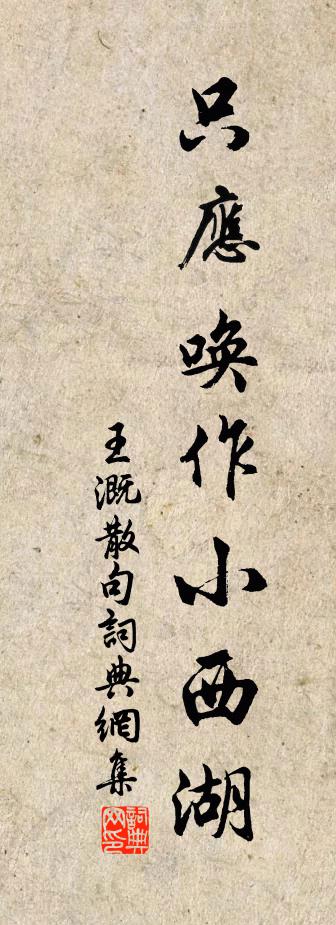 只應喚作小西湖
王溉散句詞典網集
詞典網印